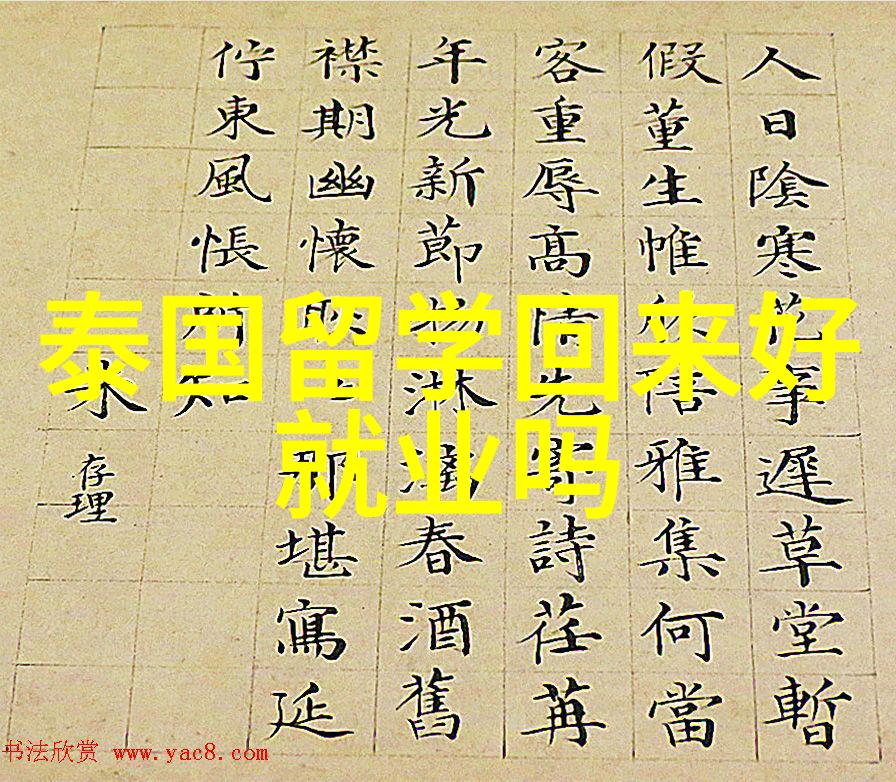 泰国留学回来好
就业吗
人日陰寒花事遲草堂暫
假董生帷陪雅集何當
客重辱高情先寄詩荏苒
年光新節物淋漓春酒舊
襟期幽懷那堪寫延
佇東風悵知
存理
书法欣赏 www.yac8.com